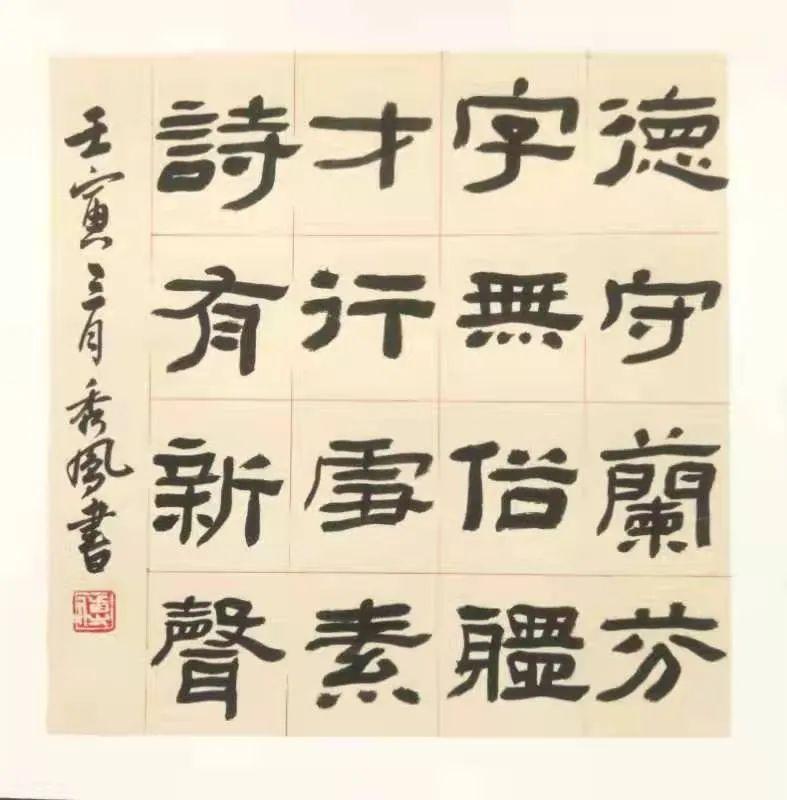 德守蘭芬
字無俗軆
才行雪素
詩有新聲
壬寅三月秀鳳書